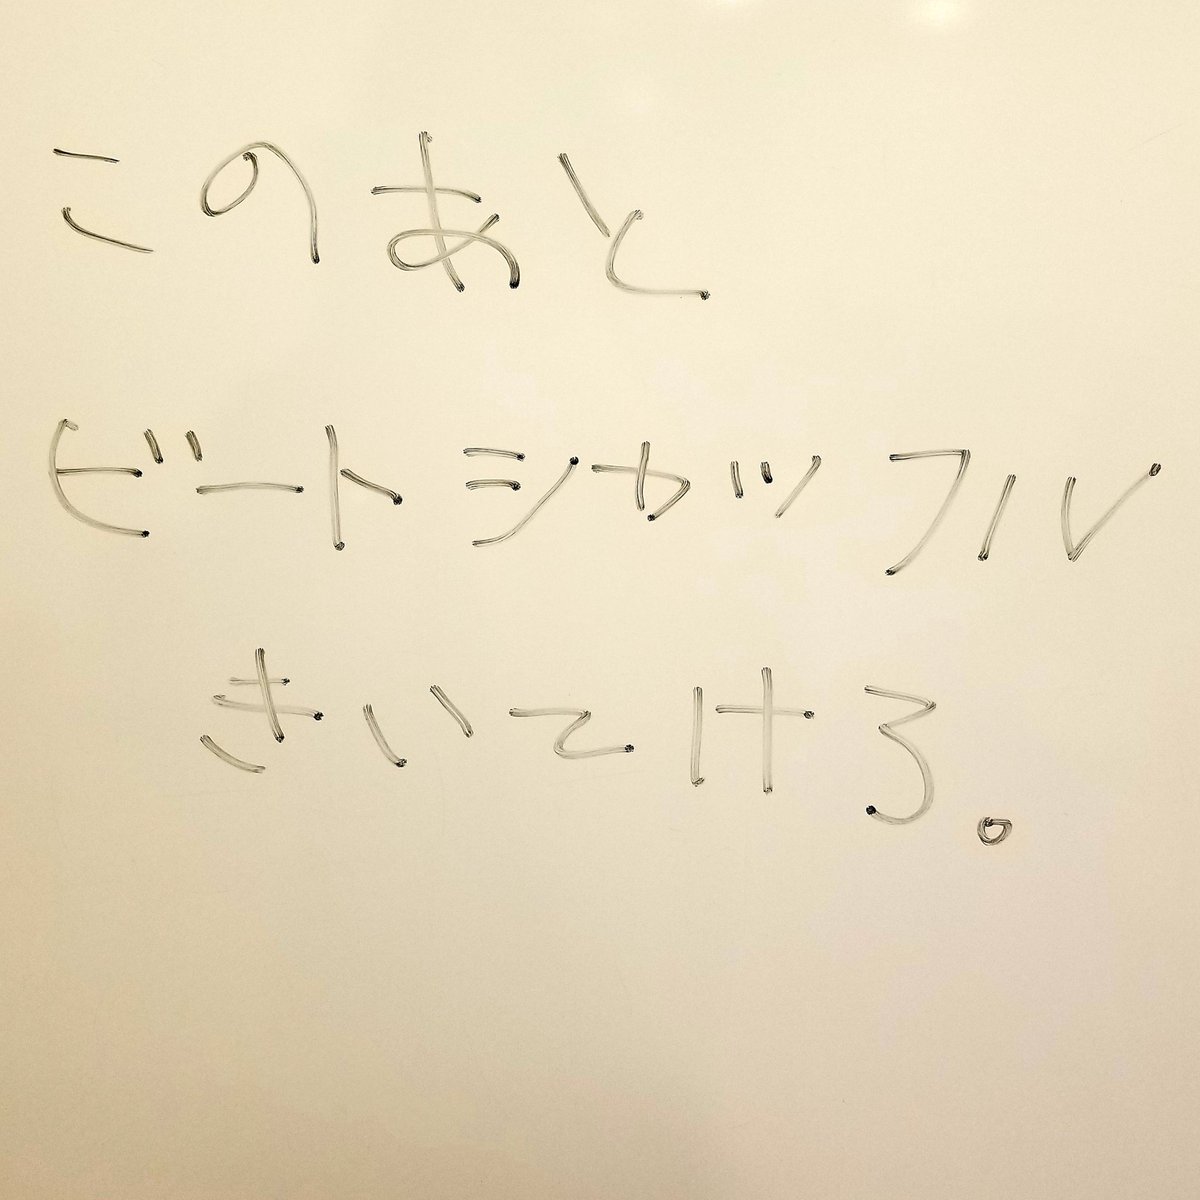 このあと
ビートシャッフル
きいてけろ。